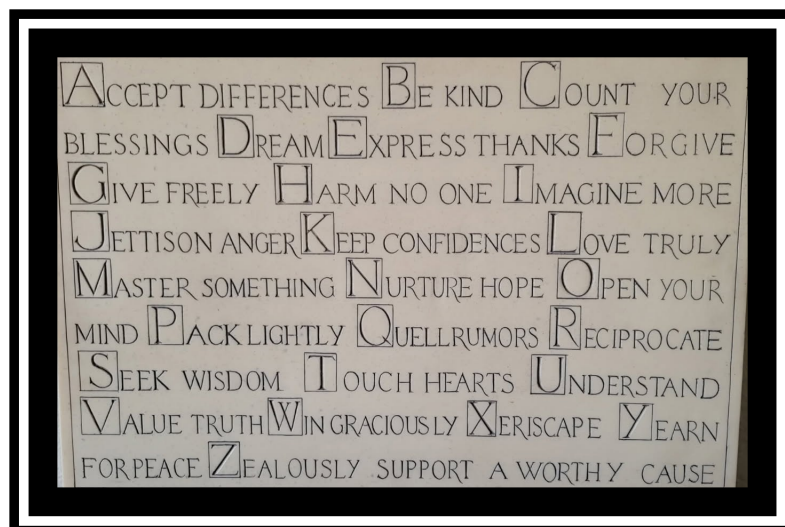 ACCEPT DIFFERENCES BE KIND COUNT YOUR
BLESSINGS DREAM EXPRESS THANKS FORGIVE
GIVE FREELY HARM NO ONE IMAGINE MORE
JETTISON ANGER KEEP CONFIDENCES LOVE TRULY
MASTER SOMETHING NURTURE HOPE OPEN YOUR
MIND PACK LIGHTLY QUELL RUMORS RECIPROCATE
SEEK WISDOM TOUCH HEARTS UNDERSTAND
VALUE TRUTH WIN GRACIOUSLY XERISCAPE YEARN
FOR PEACE ZEALOUSLY SUPPORT A WORTHY CAUSE